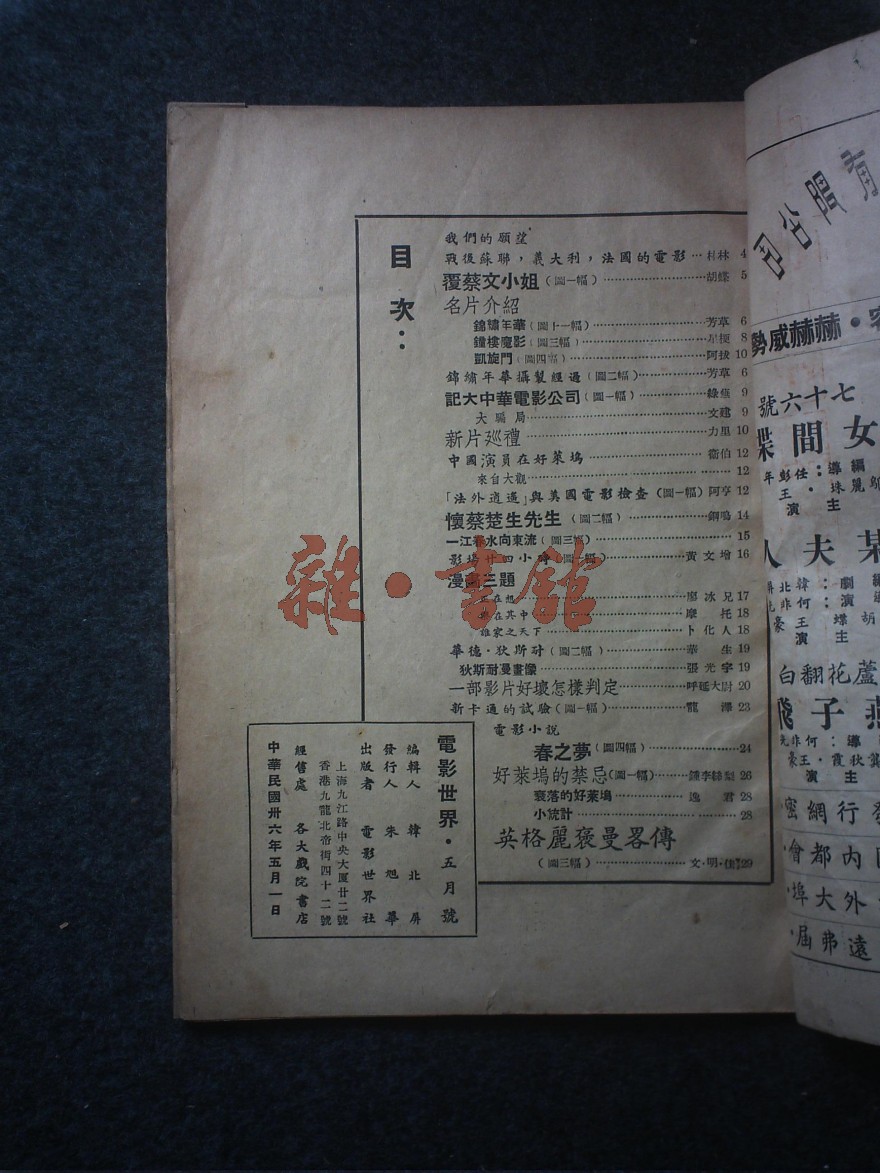 目次：
我們的願望
戰後蘇聯，義大利，法國的電影…杜林 4
覆蔡文小姐（圖一幅）…胡蝶 5
名片介紹
錦繡年華（圖十一幅）…芳草 6
鐘樓魔影（圖三幅）…星梗 8
凱旋門（圖四幅）…阿拔 10
錦繡年華攝製經過（圖二幅）…芳草 6
記大中華電影公司（圖一幅）…綠燕 9
大騙局…文建 9
新片巡禮…力里 10
中國演員在好萊塢…衛伯 12
來自大觀…12
「法外逍遙」與美國電影檢查（圖一幅）阿亨 12
懷蔡楚生先生（圖二幅）…鋼鳴 14
一江春水向東流（圖三幅）…15
影場廿四小時（圖一幅）…黃文增 16
漫畫三題
正在想…廖冰兄 17
樂在其中…摩托 18
誰家之天下…卜化人 18
華德・狄斯耐（圖二幅）…華生 19
狄斯耐漫畫像…張光宇 19
一部影片好壞怎樣判定…呼延大尉 20
新卡通的試驗（圖一幅）…龍澤 23
電影小說
春之夢（圖四幅）…24
好萊塢的禁忌（圖一幅）…鍾李絲梨 26
衰落的好萊塢…逸君 28
小統計…28
英格麗褒曼畧傳
（圖三幅）…文・明・佳 29
電影世界・五月號
編輯人 韓北屏
發行人 朱旭華
出版者 電影世界社
上海九江路中央大廈廿二號
香港九龍北帝街四十二號
經售處 各大戲院書店
中華民國卅六年五月一日
雜・書館
有限公司
赫赫威勢
七十六號
女間諜
編導：任彭年
主演
某夫人
編劇：韓北屏
導演：何非光
主演
胡蝶 王豪
蘆花翻白
燕子飛
導：何非光
主演
發行網密
國內都會
外大埠
遠弗屆